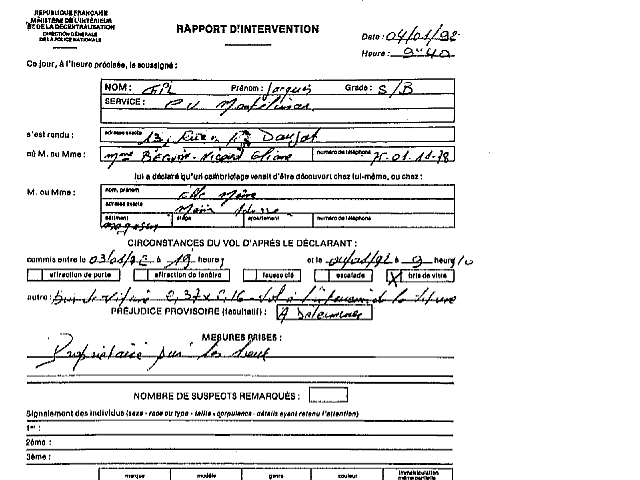 RÉPUBLIQUE FRANÇAISE
MINISTÈRE DE L'INTÉRIEUR
ET DE LA DÉCENTRALISATION
DIRECTION GÉNÉRALE
DE LA POLICE NATIONALE
RAPPORT D'INTERVENTION
Date : 04/01/92
Heure : 9h40
Ce jour, à l'heure précisée, le soussigné :
NOM : Prénom : Jacques Grade : S/B
SERVICE : Montélimar
s'est rendu : adresse exacte 13,
où M. ou Mme : Mme numéro de téléphone 75.01.11.78
lui a déclaré qu'un cambriolage venait d'être découvert chez lui-même, ou chez :
M. ou Mme : nom, prénom Elle Même
adresse exacte Même
bâtiment étage appartement numéro de téléphone
magasin
CIRCONSTANCES DU VOL D'APRÈS LE DÉCLARANT :
commis entre le 03/01/92 à 19 heures et le 04/01/92 à 9 heures 10
effraction de porte effraction de fenêtre fausse clé escalade X bris de vitre
autre : 0,37 x 0,16 - Vol à l'intérieur de la
PRÉJUDICE PROVISOIRE (facultatif) : A Déterminer
MESURES PRISES :
Propriétaire sur les lieux
NOMBRE DE SUSPECTS REMARQUÉS :
Signalement des individus (sexe - race ou type - taille - corpulence - détails ayant retenu l'attention)
1er :
2ème :
3ème :
marque modèle genre couleur immatriculation même partielle